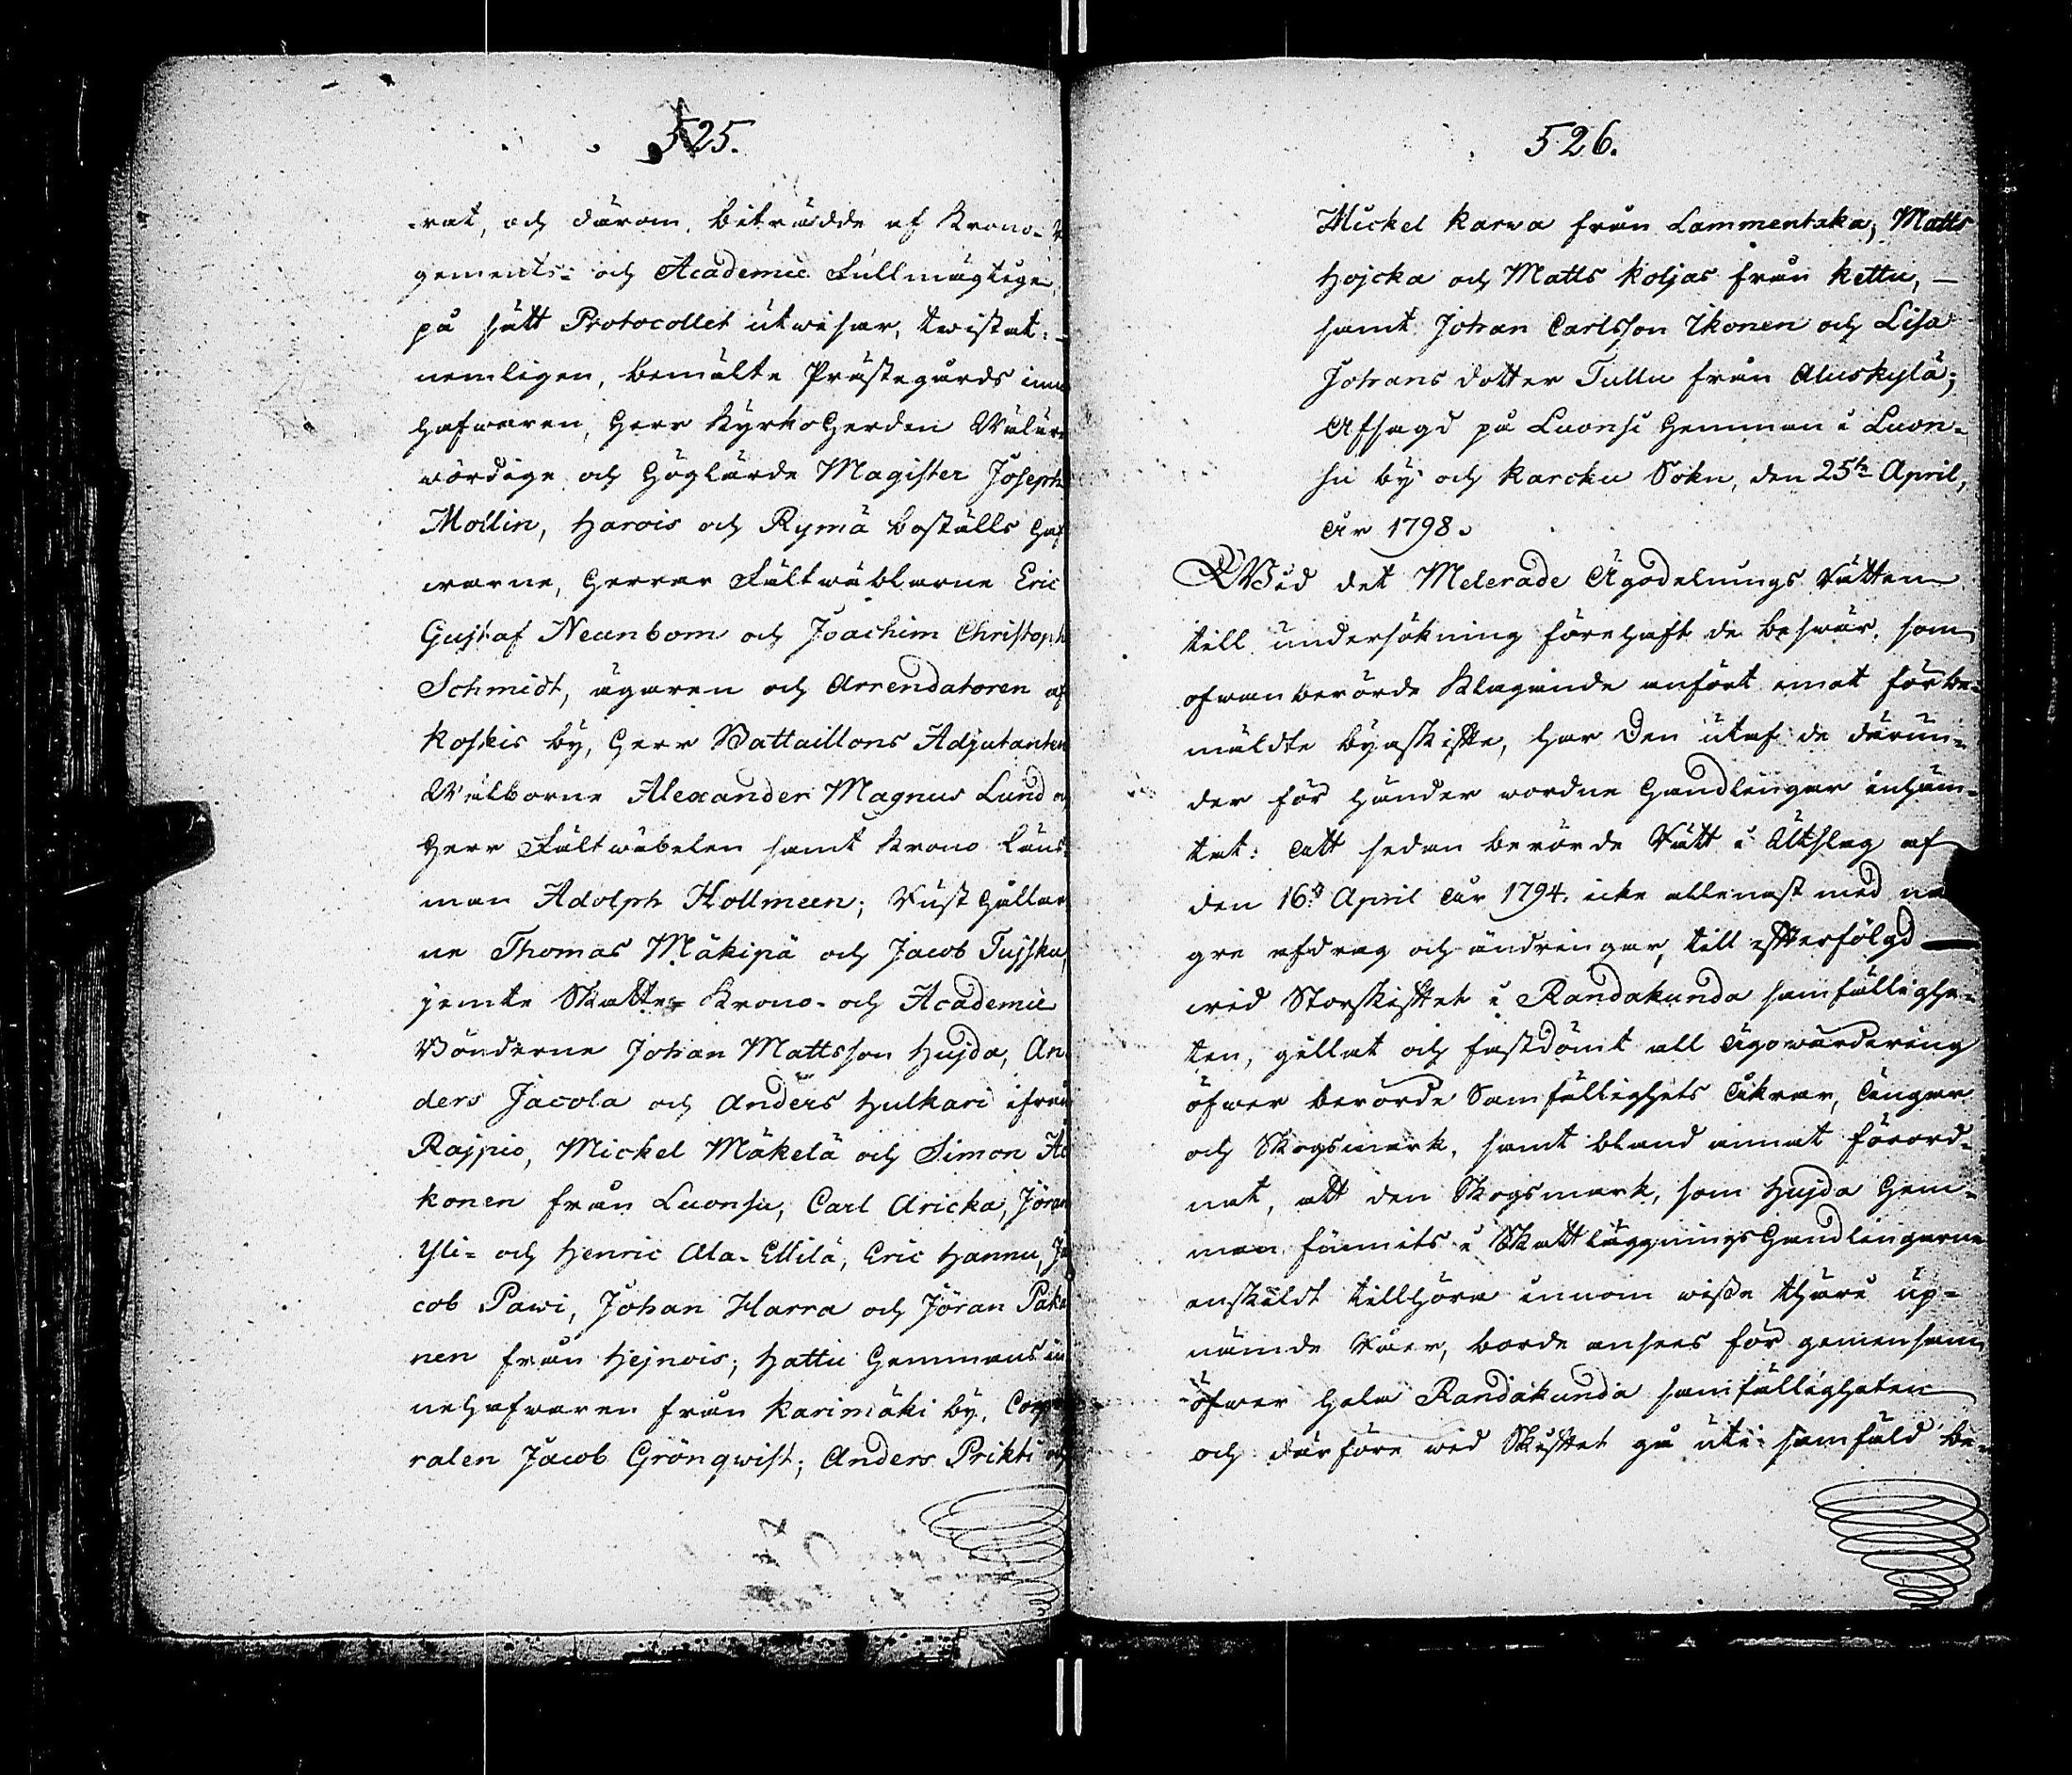 525.
-rat, och därom, biträdde af Krono-
gements- och Academie Fullmägtige,
på sätt Protocollet utwisar, twistat:-
nemligen, bemälte Prästegårds inne
hafwaren, Herr KyrkoHerden Wälär
wördige och Höglärde Magister Joseph
Mollin, Harois och Rymä boställs Haf
warne, Herrar Fältwäblarne Eric
Gustaf Neunbom och Joachim Christoph
Schmidt, ägaren och Arrendatoren af
Koskis by, Herr Battaillons Adjutanten
Wälborne Alexander Magnus Lund och
Herr Fältwäbelen samt Krono Läns-
man Adolph Hollmeen; Rusthållar
ne Thomas Mäkipä och Jacob Tujsku,
jemte Skatte- Krono- och Academie
Bönderne Johan Mattsson Hujda, An-
ders Jacola och Anders Hulkari ifrån
Rajpio, Mickel Mäkelä och Simon He
konen från Luonsu, Carl Aricka, Jöran
Yli- och Henric Ala-Ettilä, Eric Hannu, Ja
cob Pawi, Johan Harra och Jöran Paka
nen från Hejnois; Hattu Hemmans in
nehafwaren från Karimäki by, Corpo
ralen Jacob Grönqwist; Anders Prikti och
526.
Mickel Karwa från Lammentaka; Matts
Hojcka och Matts Koljas från Kettu, -
samt Johan Carlsson Ikonen och Lisa
Johans dotter Tullu från Aluskylä;
Afsagd på Luonsi Hemman i Luon-
su by och Karcku Sokn, den 25te April,
År 1798.
Wid det Melerade Ägodelnings Rätten
till undersökning förehaft de beswär, som
ofwanberörde Klagande anfört emot förbe-
mäldte byaskifte, har Den utaf de därun-
der för händer wordne Handlingar inhäm-
tat: att sedan berörde Rätt i Utslag af
den 16de April År 1794. icke allenast med nå
gre afdrag och ändringar, till efterföljd
wid Storskiftet i Randakunda samfällighe-
ten, gillat och fastdömt all ägowärdering
öfwer berörde Samfällighets Åkrar, Ängar
och Skogsmark, samt bland annat förord-
nat, att den Skogsmark, som Hujda Hem-
man funnits i Skattläggnings Handlingarne
enskildt tillhöra innom wisse thäri up-
nämde Råer, borde anses för gemensam
öfwer hela Randakunda samfälligheten
och därföre wid Skiftet gå uti samfäld be-